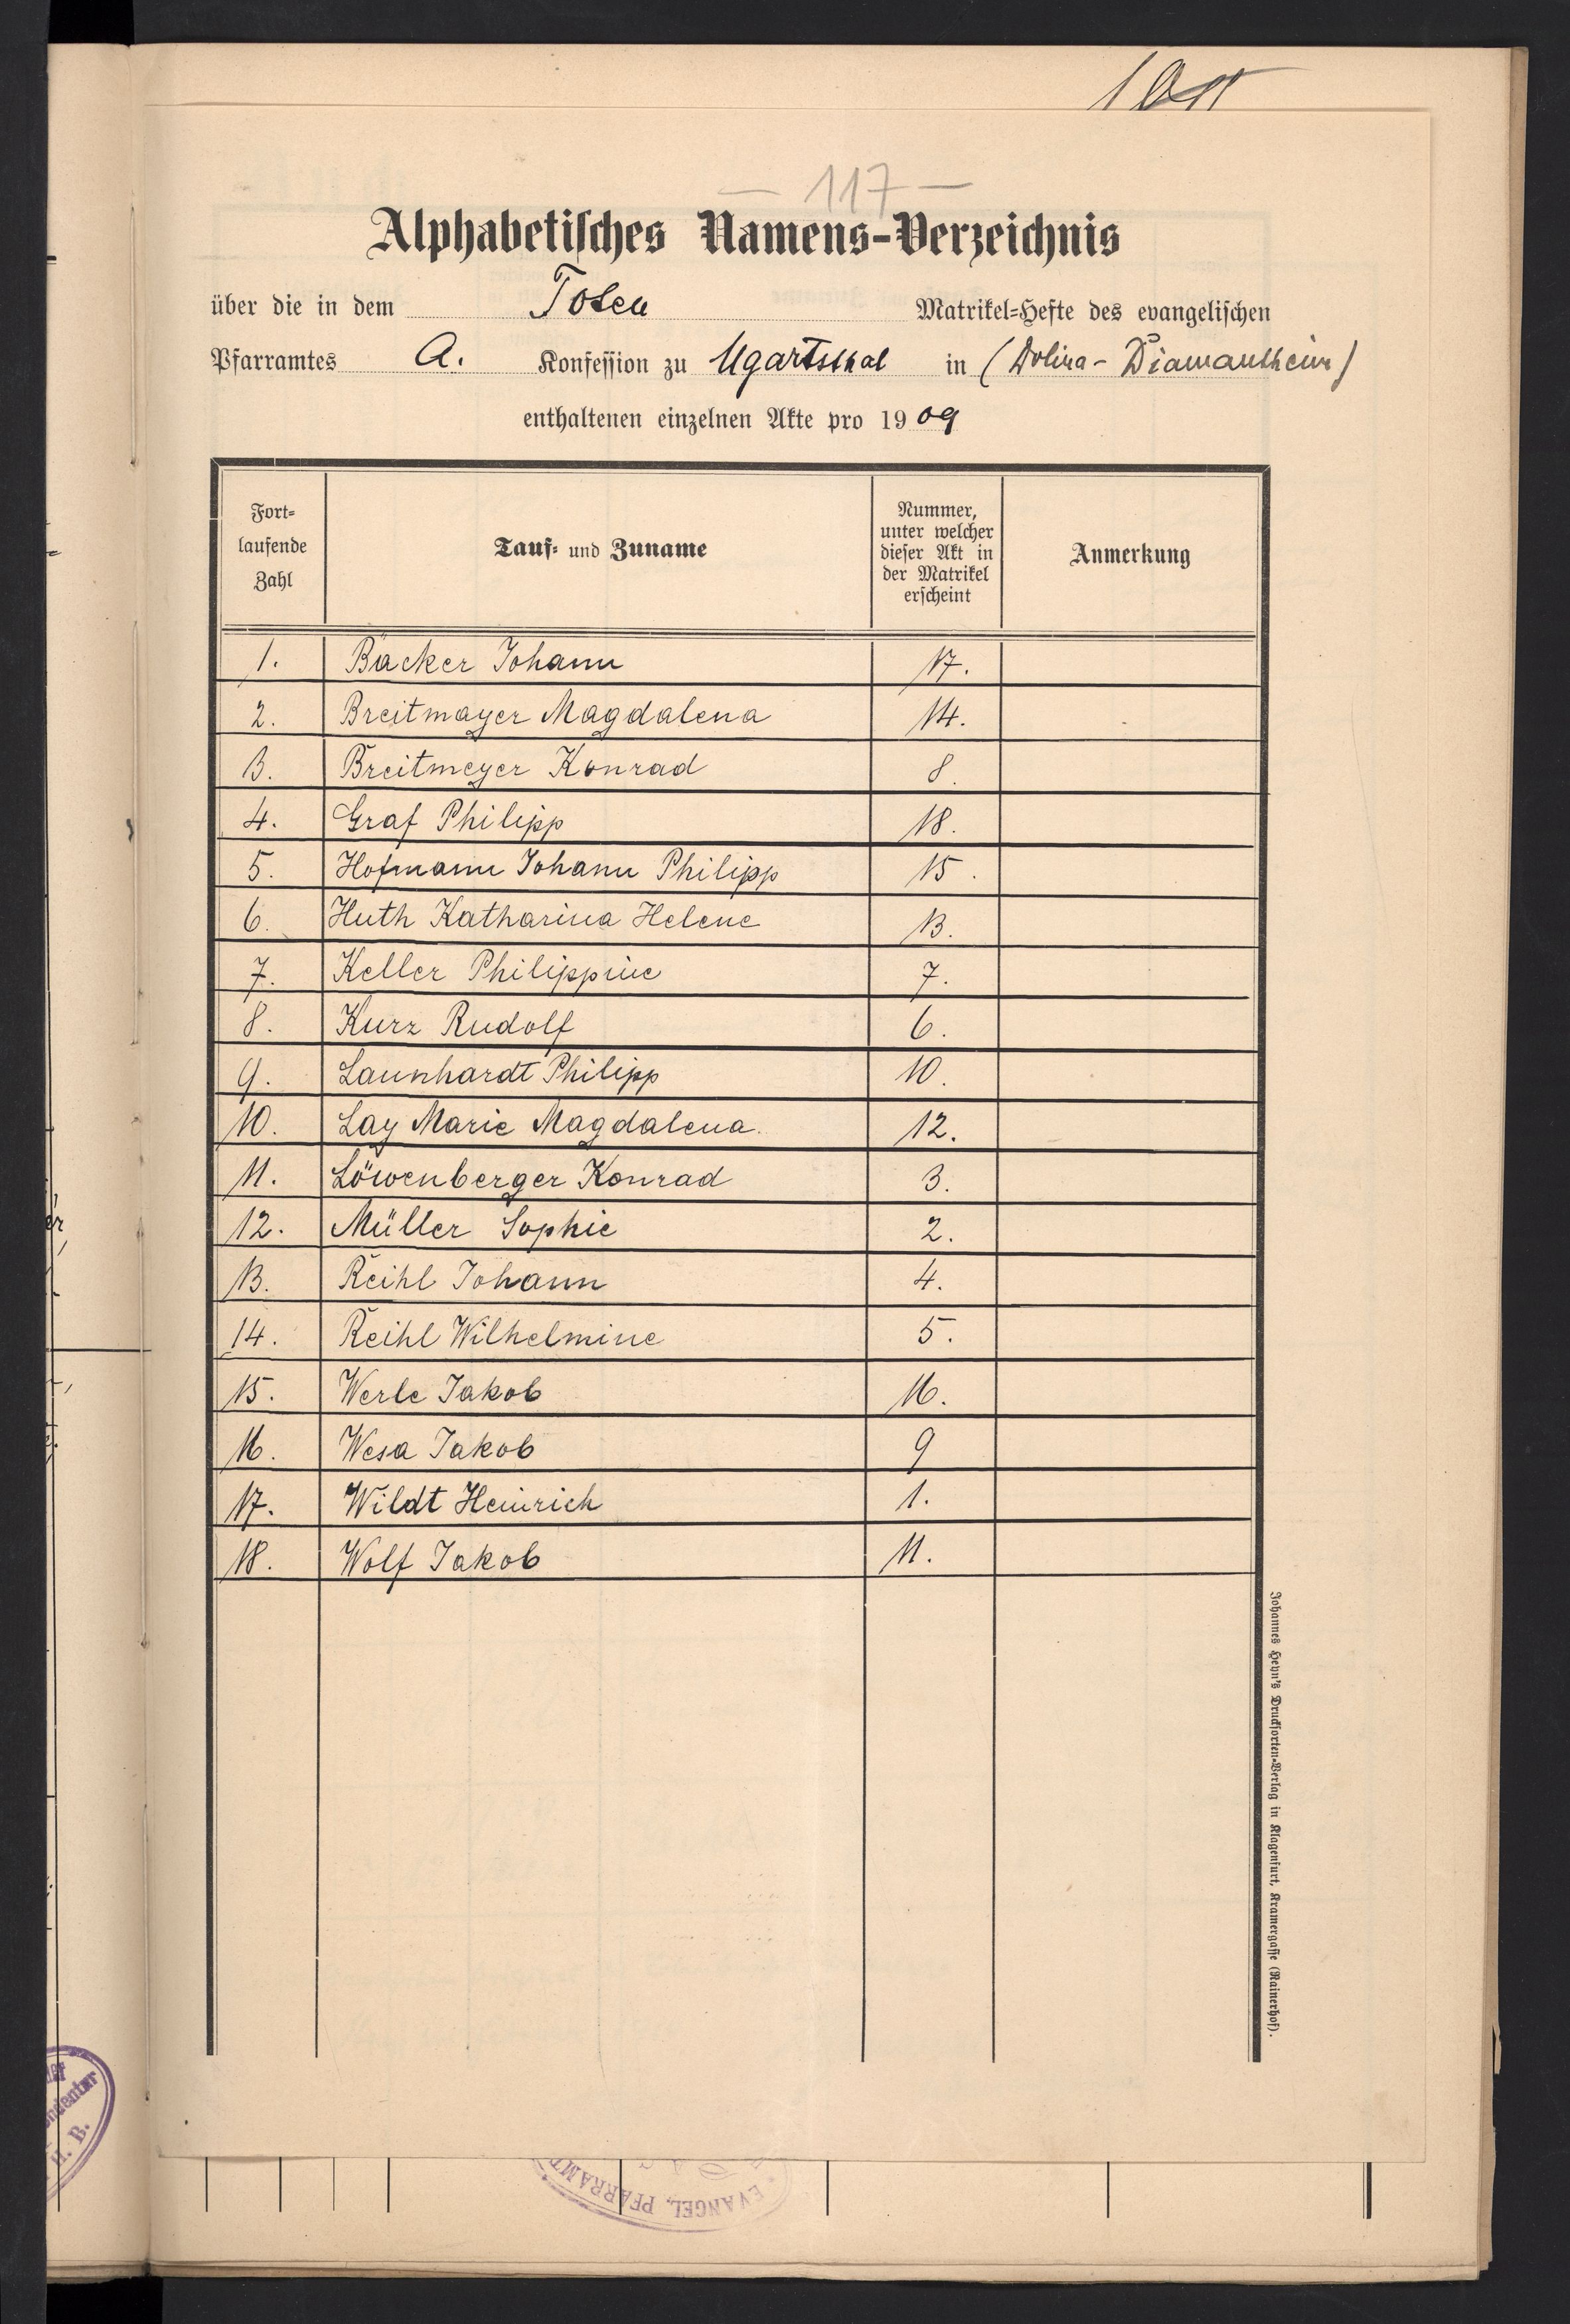 — 117 —
Alphabetisches Namens-Verzeichnis
über die in dem Toten Matrikel-Hefte des evangelischen
Pfarramtes A. Konfession zu Ugartsthal in (Dolina - Diamantheim)
enthaltenen einzelnen Akte pro 1909
Fort-
laufende
Zahl
Tauf- und Zuname
Nummer,
unter welcher
dieser Akt in
der Matrikel
erscheint
Anmerkung
1. Bäcker Johann 17.
2. Breitmayer Magdalena 14.
3. Breitmeyer Konrad 8.
4. Graf Philipp 18.
5. Hofmann Johann Philipp 15.
6. Huth Katharina Helene 13.
7. Keller Philippine 7.
8. Kurz Rudolf 6.
9. Launhardt Philipp 10.
10. Lay Marie Magdalena. 12.
11. Löwenberger Konrad 3.
12. Müller Sophie 2.
13. Reihl Johann 4.
14. Reihl Wilhelmine 5.
15. Werle Jakob 16.
16. Wesa Jakob 9
17. Wildt Heinrich 1.
18. Wolf Jakob 11.
Johannes Heyn's Drucksorten-Verlag in Klagenfurt, Kramergasse (Rainerhof).
EVANGEL. PFARRAMT
H. B.